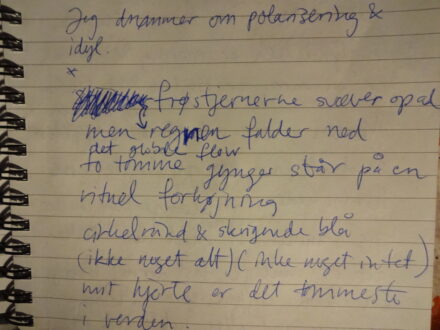 Jeg drømmer om polarisering &
idyl.
*
frøstjernerne svæver opad
men regnen falder ned
det globale flow
to tomme gynger står på en
rituel forhøjning
cirkelrund & skrigende blå
(ikke noget alt) (ikke noget intet)
mit hjerte er det tommeste
i verden.